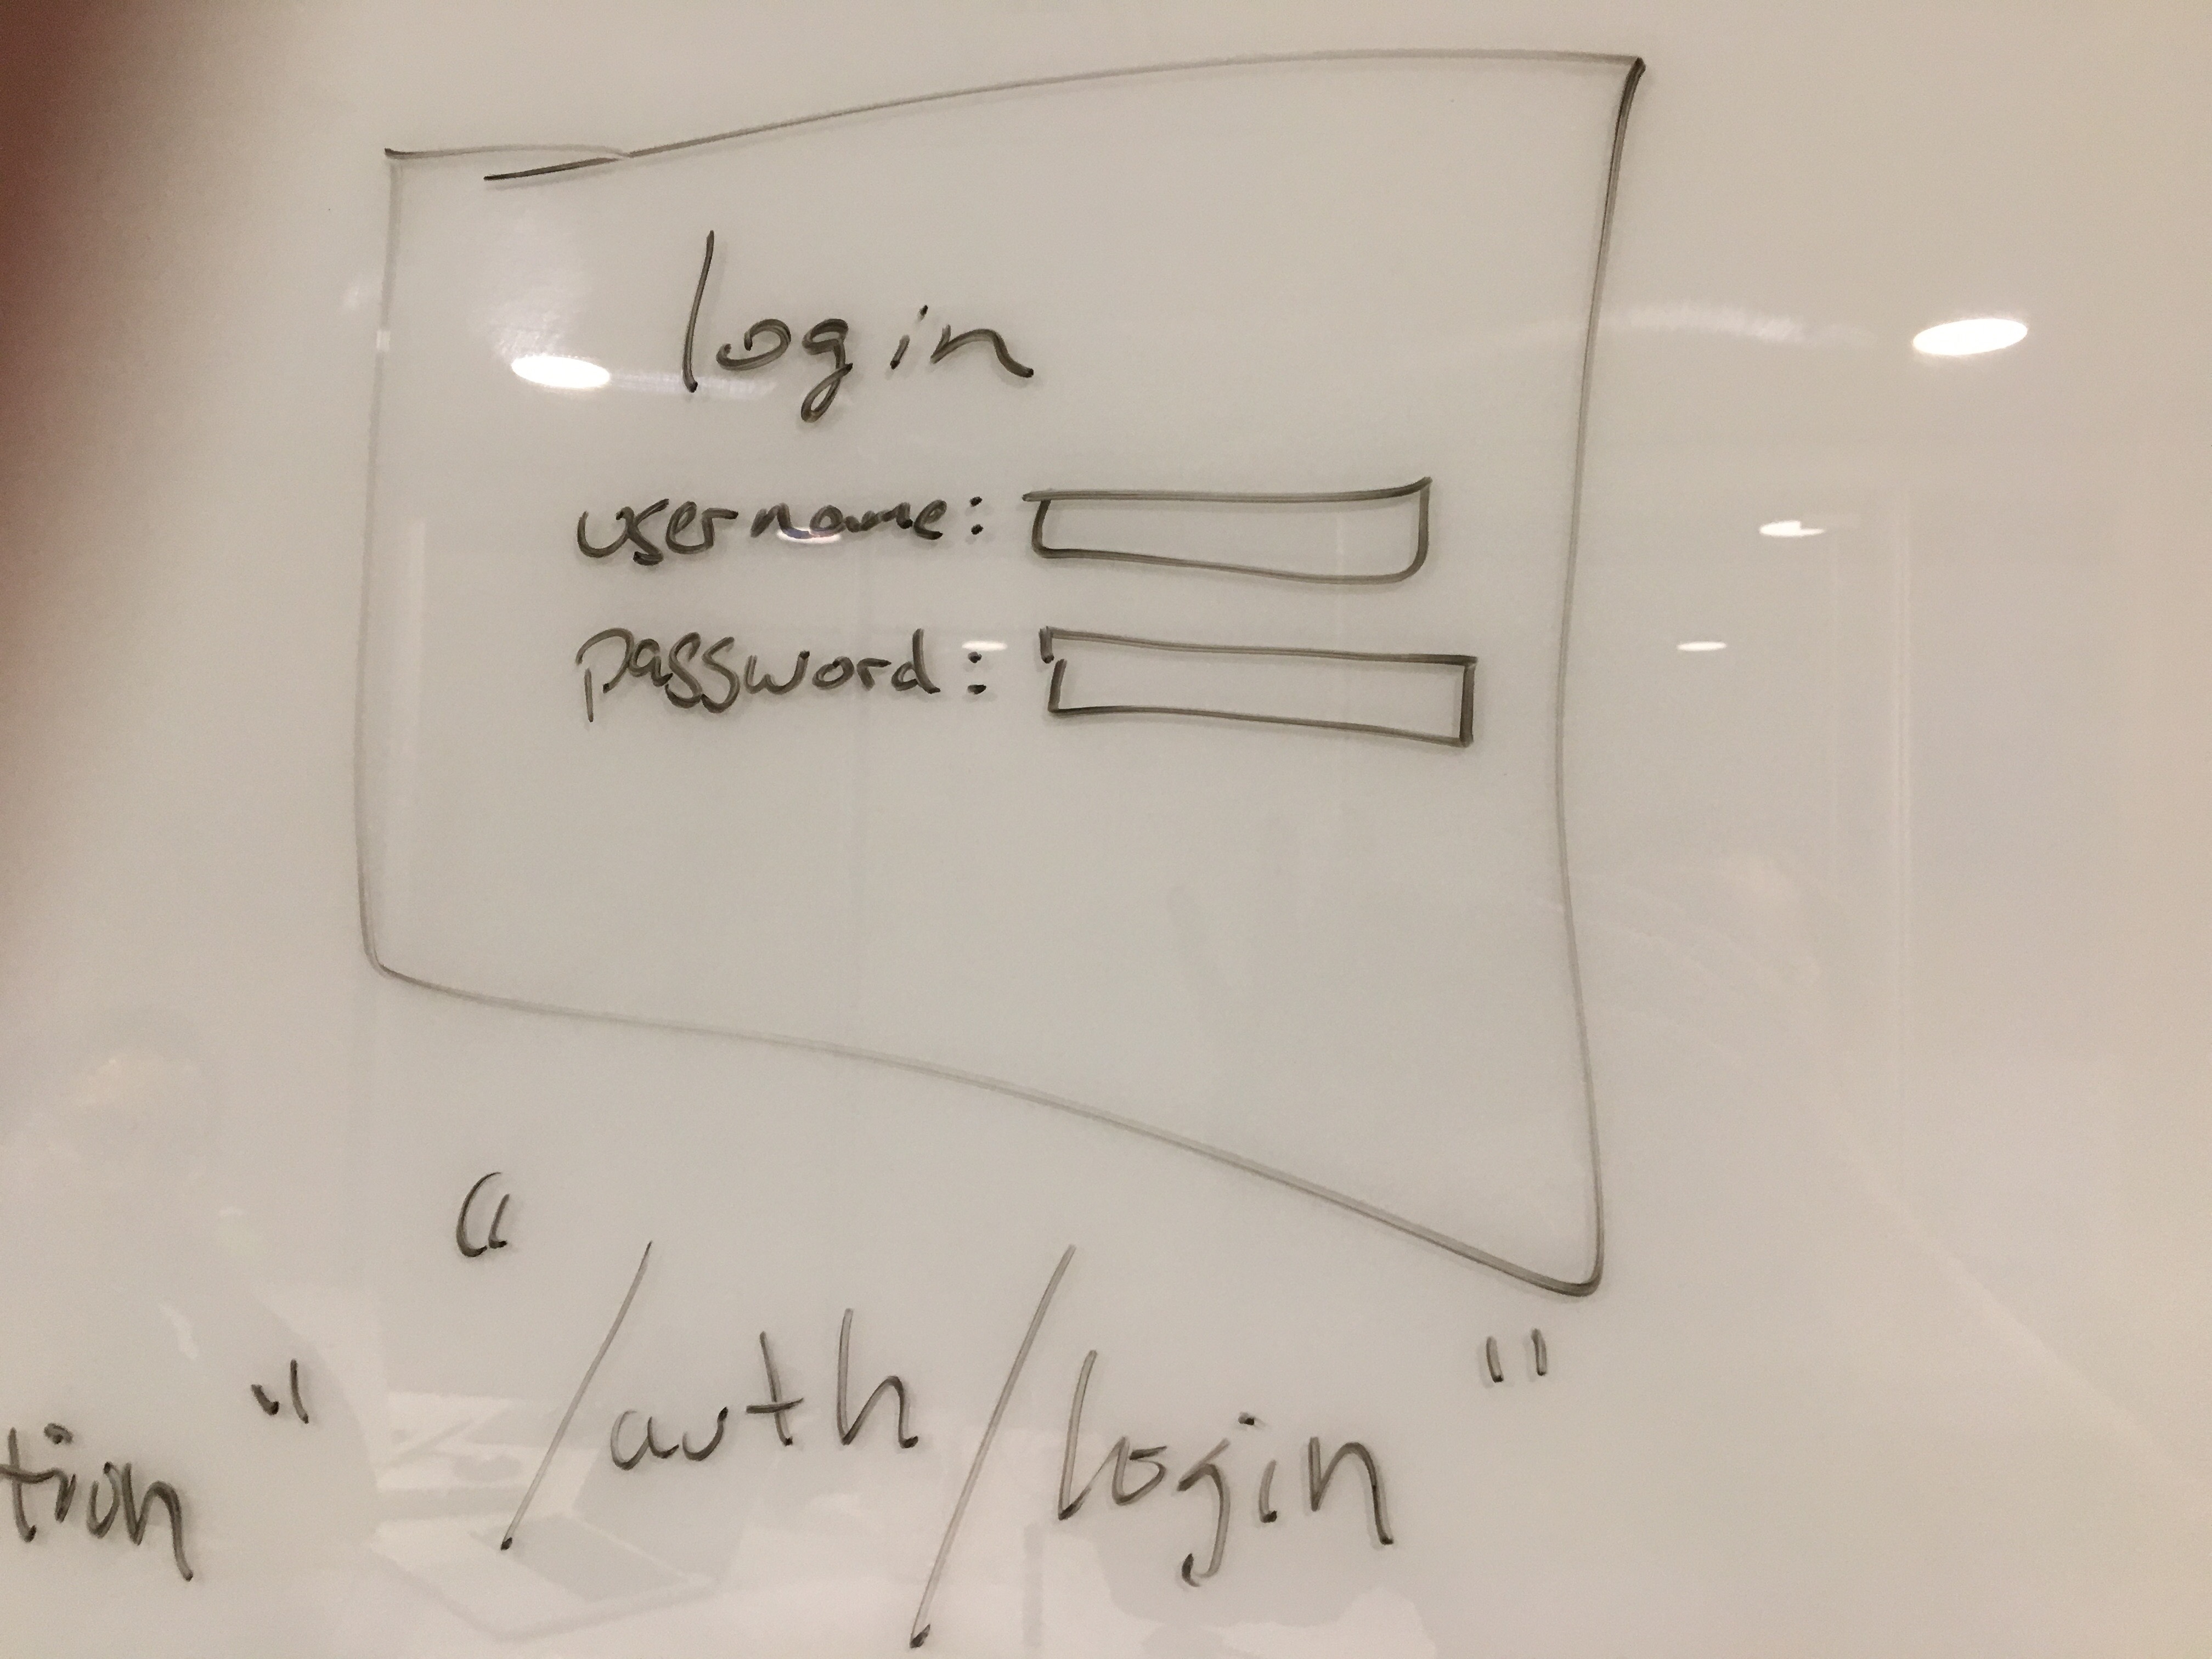 login
username:
password:
tion" "/auth/login"